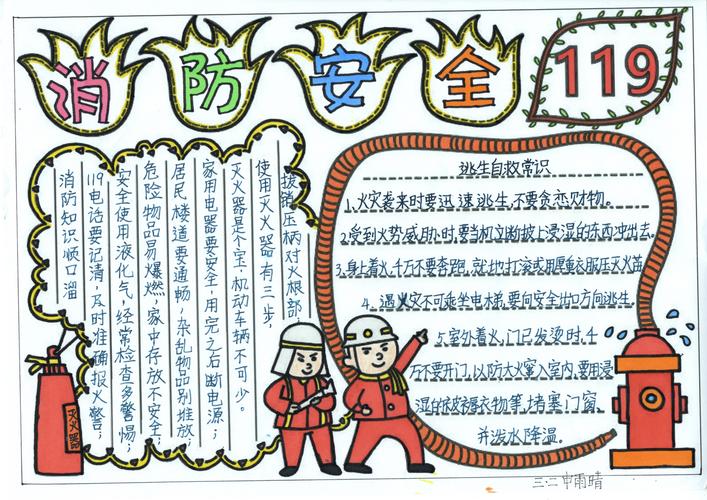 消防安全
119
消防知识顺口溜
119电话要记清,及时准确报火警;
安全使用液化气,经常检查多警惕;
危险物品易爆燃,家中存放不安全;
居民楼道要通畅,杂乱物品别堆放;
家用电器要安全,用完之后断电源;
灭火器是个宝,机动车辆不可少。
使用灭火器有三步,
拔销压柄对火根部
灭火器
逃生自救常识
1、火灾袭来时要迅速逃生,不要贪恋财物。
2、受到火势威胁时,要当机立断披上浸湿的东西冲出去。
3、身上着火,千万不要奔跑,就地打滚或用厚重衣服压灭火苗
4、遇火灾不可乘坐电梯,要向安全出口方向逃生。
5、室外着火,门已发烫时,千
万不要开门,以防大火窜入室内,要用浸
湿的被褥衣物等,堵塞门窗、
并泼水降温。
三.二 申雨晴